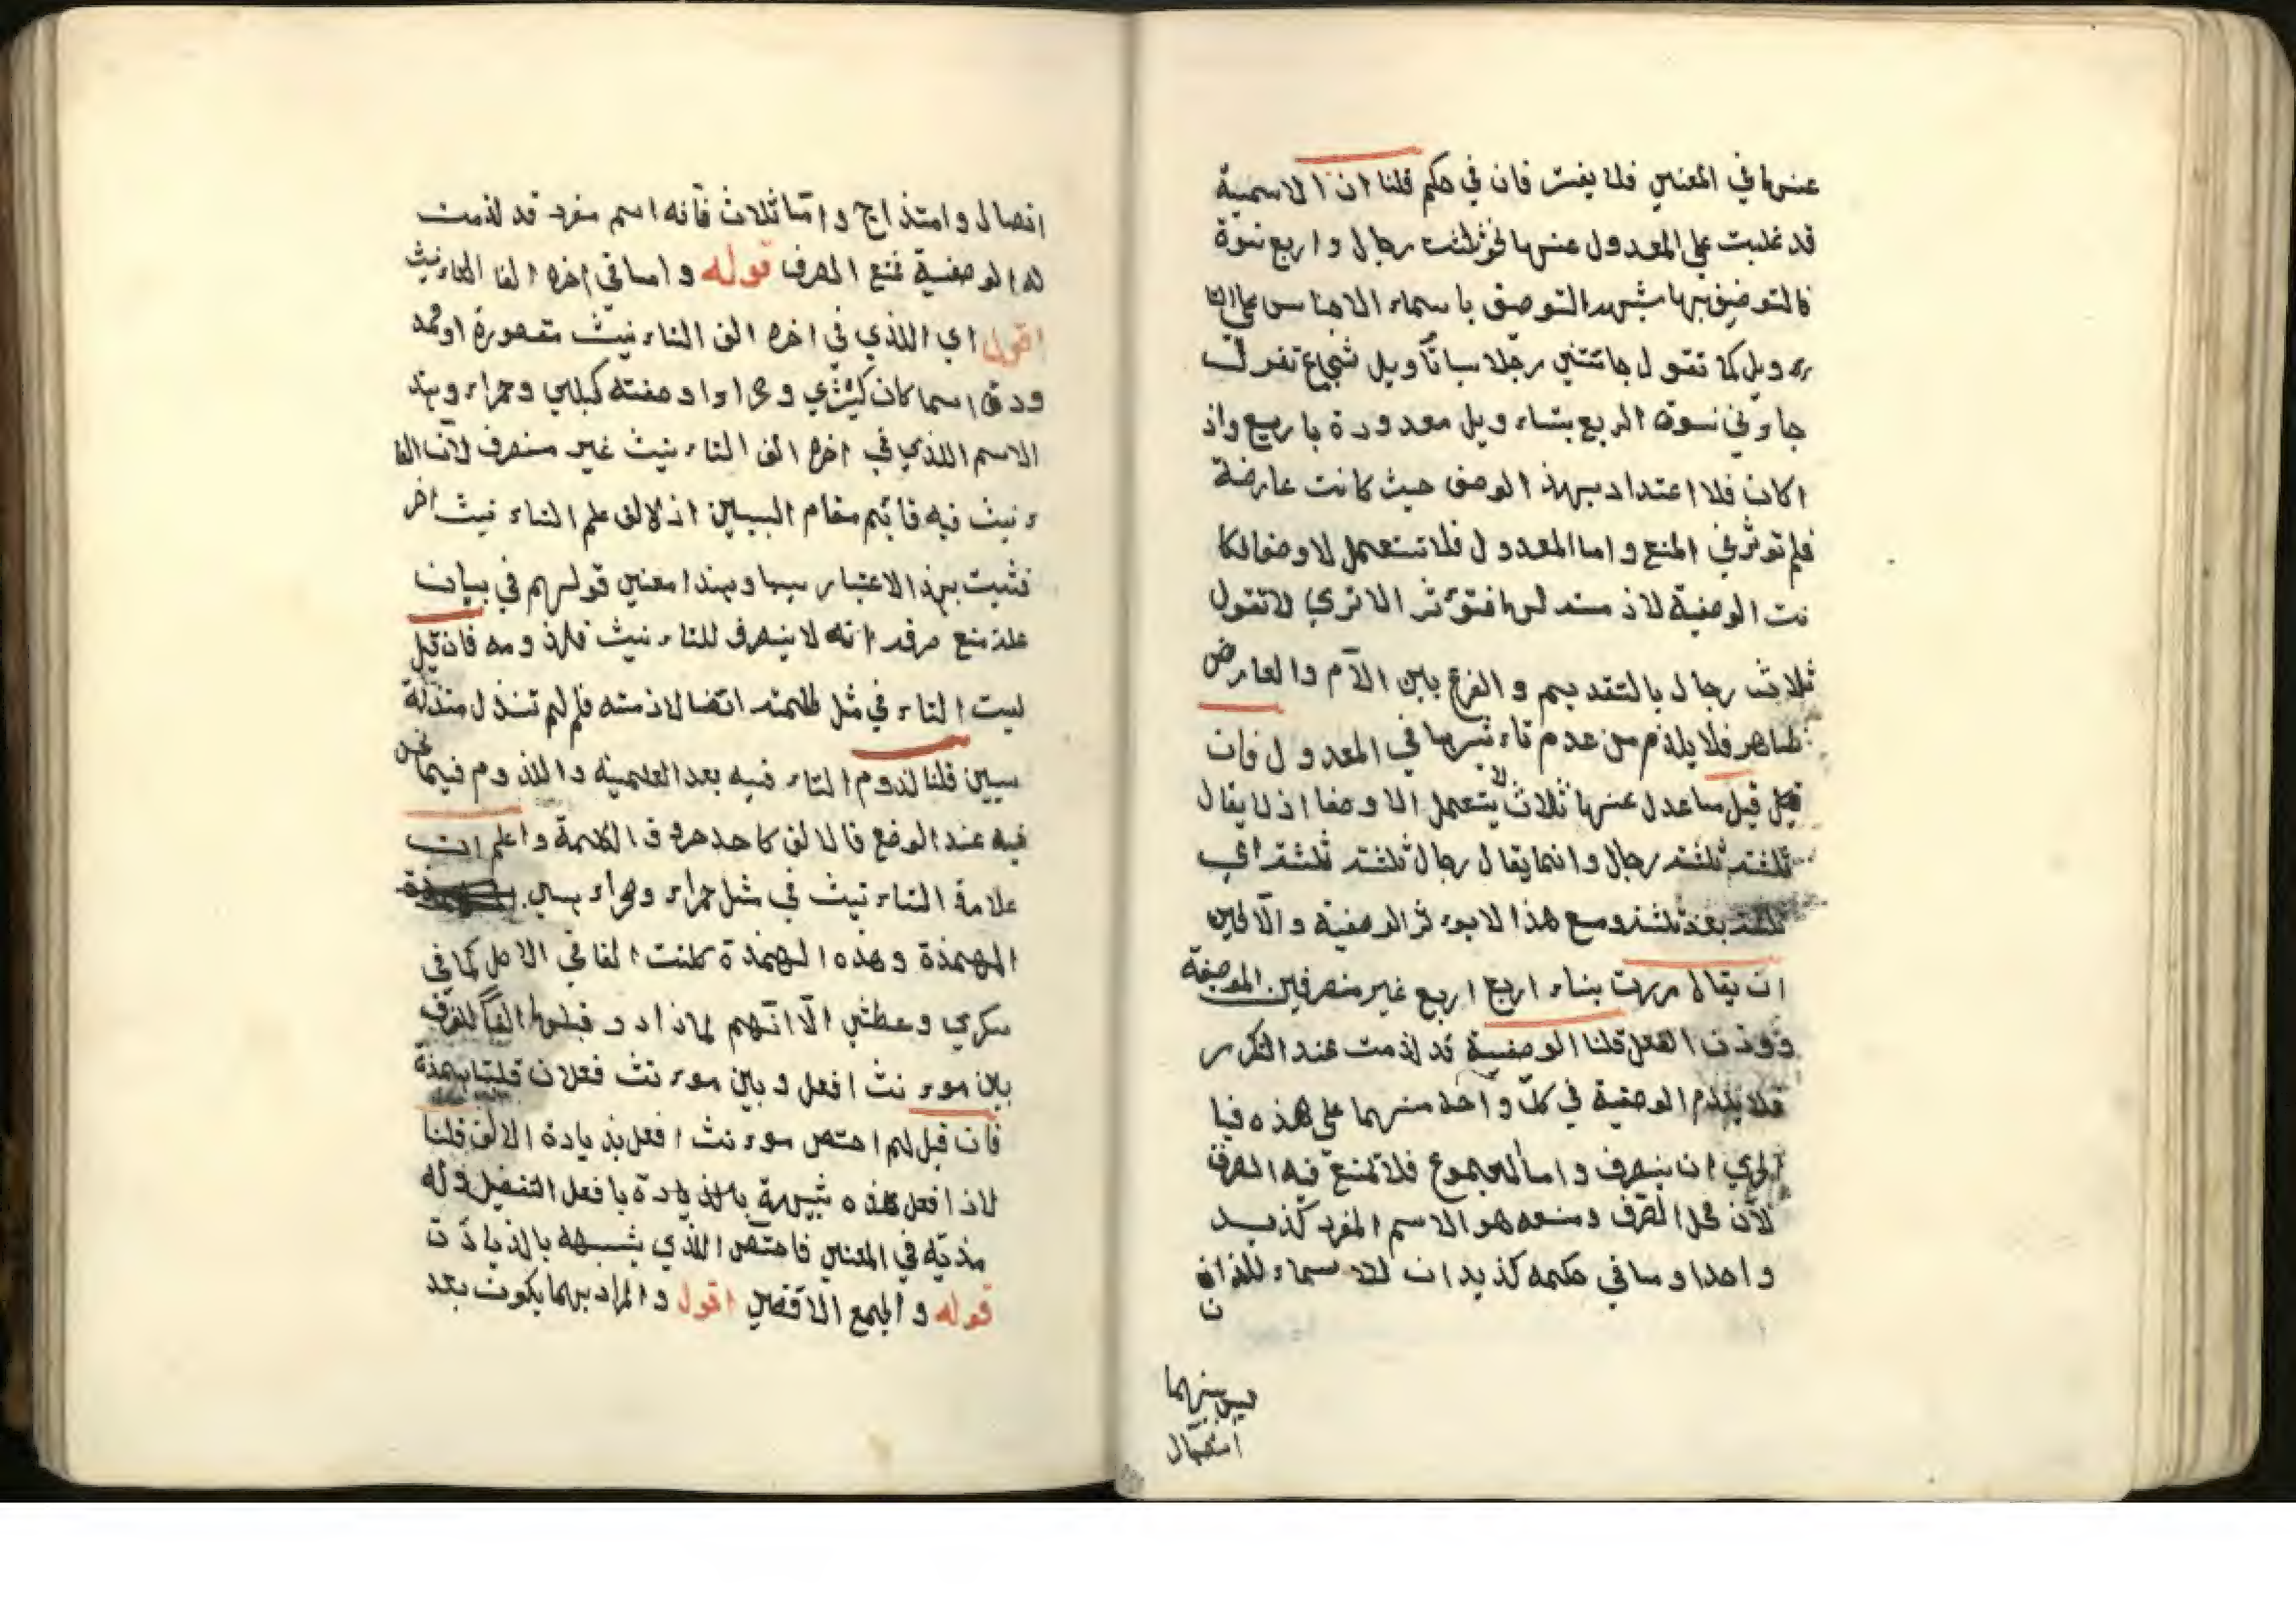 عنها في المعنى فلا يفترقان في حكم قلنا ان الاسمية
قد غلبت على المعدول عنها نحو ثلثة رجال و اربع نسوة
فالتوصيف بها شبهه التوصيف باسماء الاجناس على التا
ء ويل كما تقول جائني رجل اسد بتاويل شجاع تقول
جاءوني نسوة اربع بتاء ويل معدودة باربع واذ
اكان فلا اعتداد بهذ الوصف حيث كانت عارضة
فلم توثر في المنع و اما المعدول فلا تستعمل الا وصفا فكا
نت الوصفية لاز مته لها فتؤثر الا ترى لا تقول
ثلاث رجال بالتقديم و الفرق بين اللازم والعارض
ظاهر فلا يلزم من عدم تاء ثيرها في المعدول فان
قيل ما عدل عنها ثلاث لا يستعمل الا وصفا اذ لا يقال
ثلثة ثلثة رجال و انما يقال رجال ثلثة ثلثة اي
ثلثة بعد ثلثة و مع هذا لا يوء ثر الوصفية و الا لحين
ان يقال مررت بنساء اربع اربع غير منصرفين الموصفة
و وزن الفعل قلنا الوصفية قد لزمت عند التكرر
فلا يلزم الوصفية في كل واحد منهما على هذه فيا
لحري ان ينصرف و اما المجموع فلا تمنع فيه الصرف
لان محل الصرف و منعه هو الاسم المفرد كزيد
واحدا و ما في حكمه كزيدان
ليس بينهما
اتصال
اتصال و امتذاج و اما ثلاث فانه اسم مفرد قد لذمت
له الوصفية فمنع الصرف قوله و اما في اخره الفا التاء نيث
اقول اي الذي في اخره الف التاء نيث مقصورة او ممد
ودة اسما كان كبشرى و صحراء او صفته كحبلى و حمراء و بهذ
الاسم اللذي في اخره الف التاء نيث غير منصرف لان التا
ء نيث فيه قائم مقام السببين اذ لالف علم التاء نيث اخر
فثبت بهذ الاعتبار سببا و هذا معنى قولهم في بيان
علة منع صرفه انه لا ينصرف للتاء نيث و لزومه فان قيل
ليست التاء في مثل طلحته ايضا لاذمته فلم لم تنذل منذلة
سببين قلنا لذوم التاء فيه بعد العلمية و اللذوم فيما نحن
فيه عند الوضع فالالف كاحد حروف الكلمة و اعلم ان
علامة التاء نيث في مثل حمراء و صحراء هي
الهمذة و هذه الهمذة كانت الفا في الاصل كما في
سكرى و عطشى الا انهم لما ذادو قبلها الفا للفرق
بين موء نث افعل و بين موء نث فعلان قلبتا همذة
فان قيل لم اختص موء نث افعل بذيادة الالف قلنا
لان افعل هذه شبيهة بالذيادة بافعل التفضيل و له
مذية في المعنى فاختص اللذي يشبهه بالذيادة
قوله و الجمع الاقصى اقول و المراد بهما يكون بعد